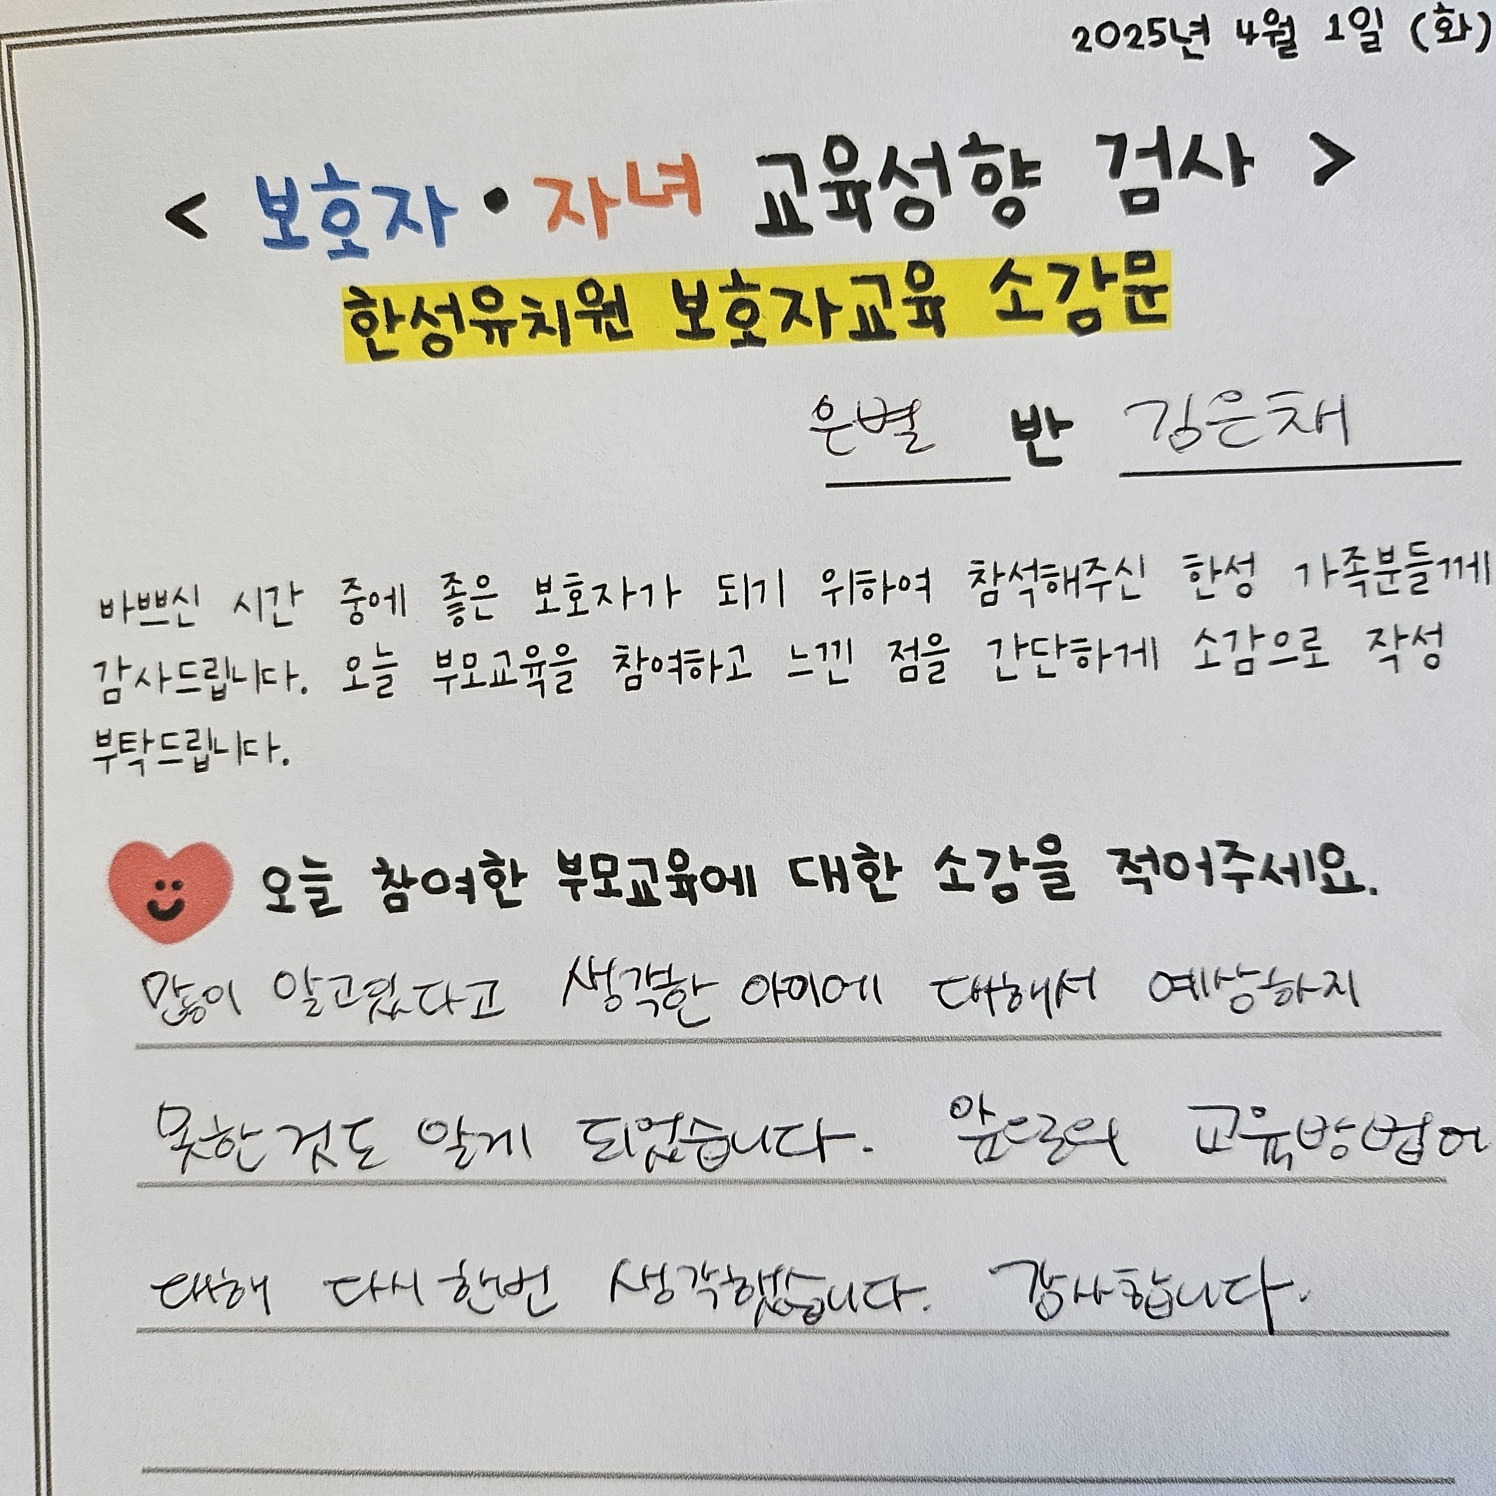 2025년 4월 1일 (화)
< 보호자・자녀 교육성향 검사 >
한성유치원 보호자교육 소감문
은별 반 김은채
바쁘신 시간 중에 좋은 보호자가 되기 위하여 참석해주신 한성 가족분들께
감사드립니다. 오늘 부모교육을 참여하고 느낀 점을 간단하게 소감으로 작성
부탁드립니다.
오늘 참여한 부모교육에 대한 소감을 적어주세요.
많이 알고있다고 생각한 아이에 대해서 예상하지
못한것도 알게 되었습니다. 앞으로의 교육방법에
대해 다시한번 생각했습니다. 감사합니다.